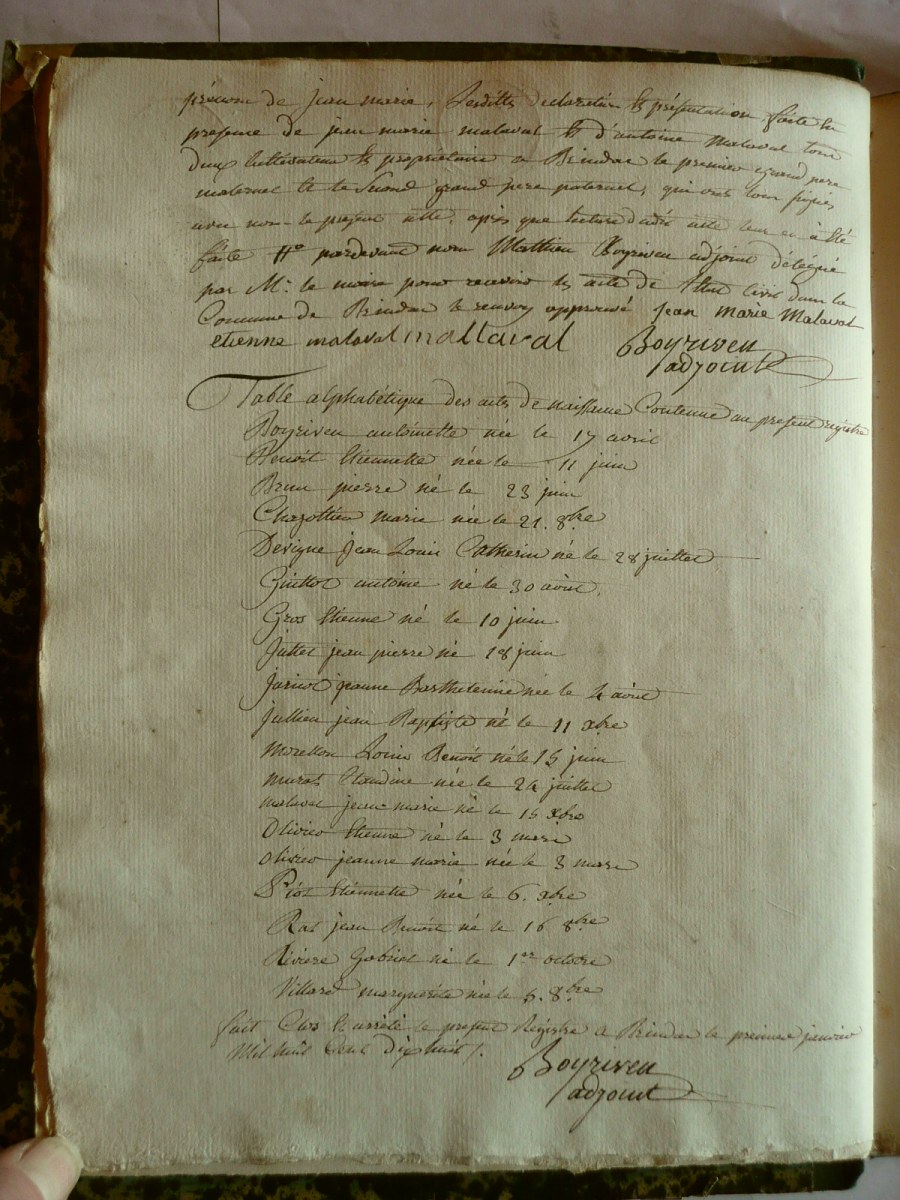 prénom de jean marie, lesdittes declaration & présentation faite en
presence de jean marie malaval & d'antoine Malaval tous
deux cultivateurs & proprietaire a Brindas le premier grand pere
maternel et le second grand pere paternel, qui ont tous signés
avec nous le present acte, après que lecture dudit acte leur en a été
faite pardevant nous Matthieu Boyriven adjoint délégué
par Mr. le maire pour recevoir les acte de l'Etat civil dans la
Commune de Brindas le renvoy approuvé Jean Marie Malaval
etienne malaval mallaval Boyriven
adjoint
Table alphabétique des acts de naissance Contenue au present registre
Boyriven antoinette née le 17 avril
Benoit Etiennette née le 11 juin
Brun pierre né le 23 juin
Chazottier marie née le 21. 8bre
Devigne jean Louis Catherin né le 28 juillet
Guittot antoine né le 30 août.
Gros Etienne né le 10 juin
Juttet jean pierre né 18 juin
Juricot jeanne Barthelemie née le 4 août
Jullien jean Baptiste né le 11 xbre
Morellon Louis Benoit né le 15 juin
murat Claudine née le 24 juillet
malaval jean-marie né le 15 xbre
Olivier Etienne né le 3 mars
olivier jeanne marie née le 3 mars
Piot Etiennette née le 6. xbre
Rat jean Benoit né le 16 8bre
Riviere Gabriel né le 1er octobre
Villard marguerite née le 5. 8bre
fait Clos & arrêté le present Régistre a Brindas le premier janvier
Mil huit Cent Dix huit /.
Boyriven
adjoint